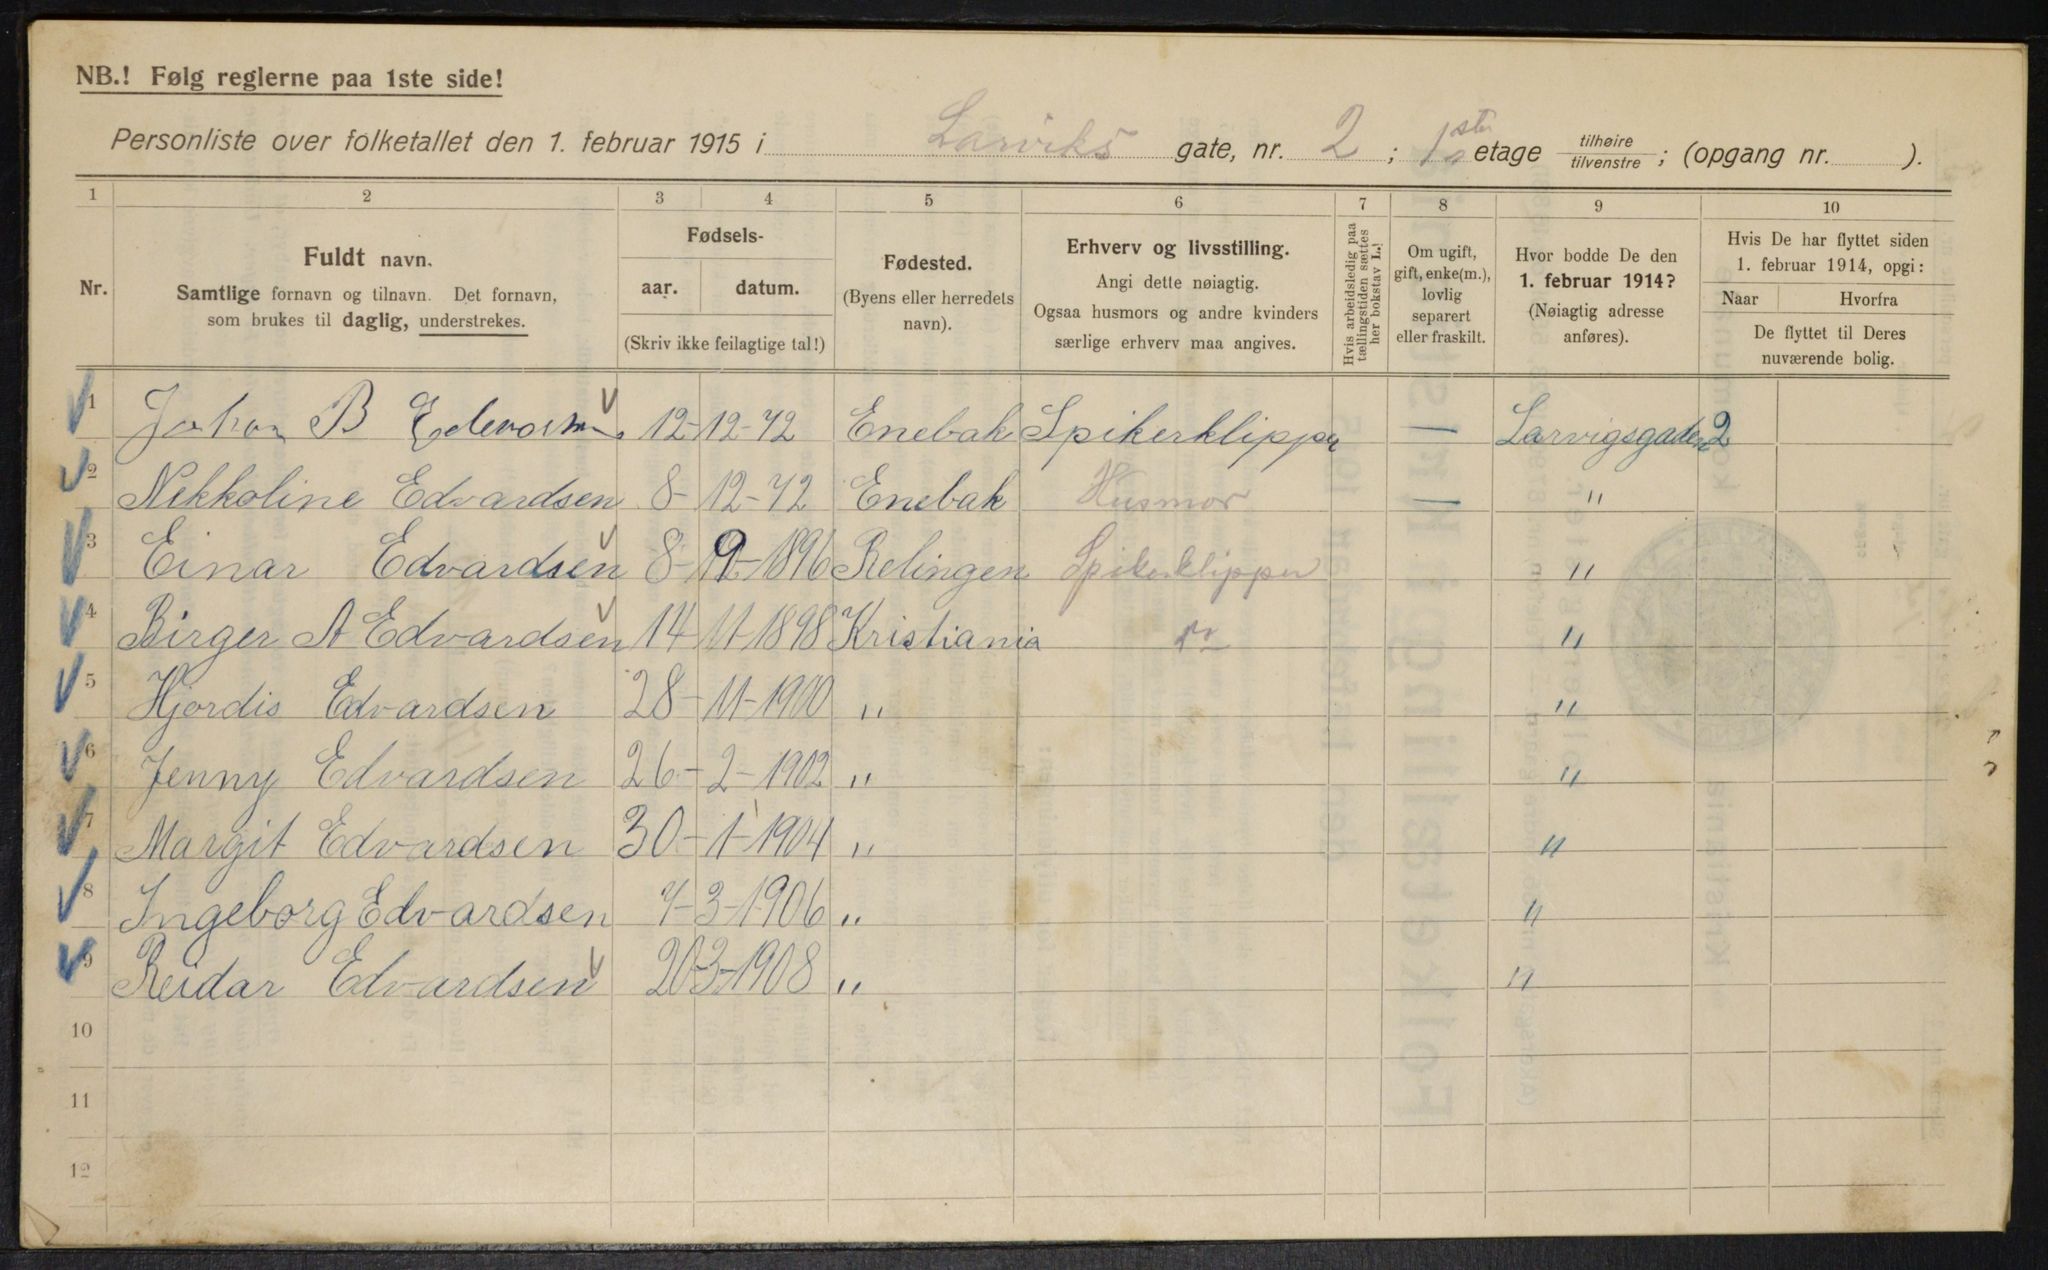 NB.! Følg reglerne paa 1ste side!
Personliste over folketallet den 1. februar 1915 i Larviks gate, nr. 2 ; 1ste etage tilhøire / tilvenstre ; (opgang nr. ).
1 2 3 4 5 6 7 8 9 10
Nr.
Fuldt navn.
Samtlige fornavn og tilnavn. Det fornavn,
som brukes til daglig, understrekes.
Fødsels-
aar. datum.
(Skriv ikke feilagtige tal!)
Fødested.
(Byens eller herredets
navn).
Erhverv og livsstilling.
Angi dette nøiagtig.
Ogsaa husmors og andre kvinders
særlige erhverv maa angives.
Hvis arbeidsledig paa
tællingstiden sættes
her bokstav L.!
Om ugift,
gift, enke(m.),
lovlig
separert
eller fraskilt.
Hvor bodde De den
1. februar 1914?
(Nøiagtig adresse
anføres).
Hvis De har flyttet siden
1. februar 1914, opgi:
Naar Hvorfra
De flyttet til Deres
nuværende bolig.
1 Johan B 12-12-72 Enebak Spikerklipper — Larvigsgaden 2
2 Nekkoline Edvardsen 8-12-72 Enebak Husmor — "
3 Einar Edvardsen 8-9-1896 Relingen Spikerklipper "
4 Birger A Edvardsen 14-11-1898 Kristiania "
5 Hjordis Edvardsen 28-11-1900 " "
6 Jenny Edvardsen 26-2-1902 " "
7 Margit Edvardsen 30-1-1904 " "
8 Ingeborg Edvardsen 7-3-1906 " "
9 Reidar Edvardsen 20-3-1908 " "
10
11
12